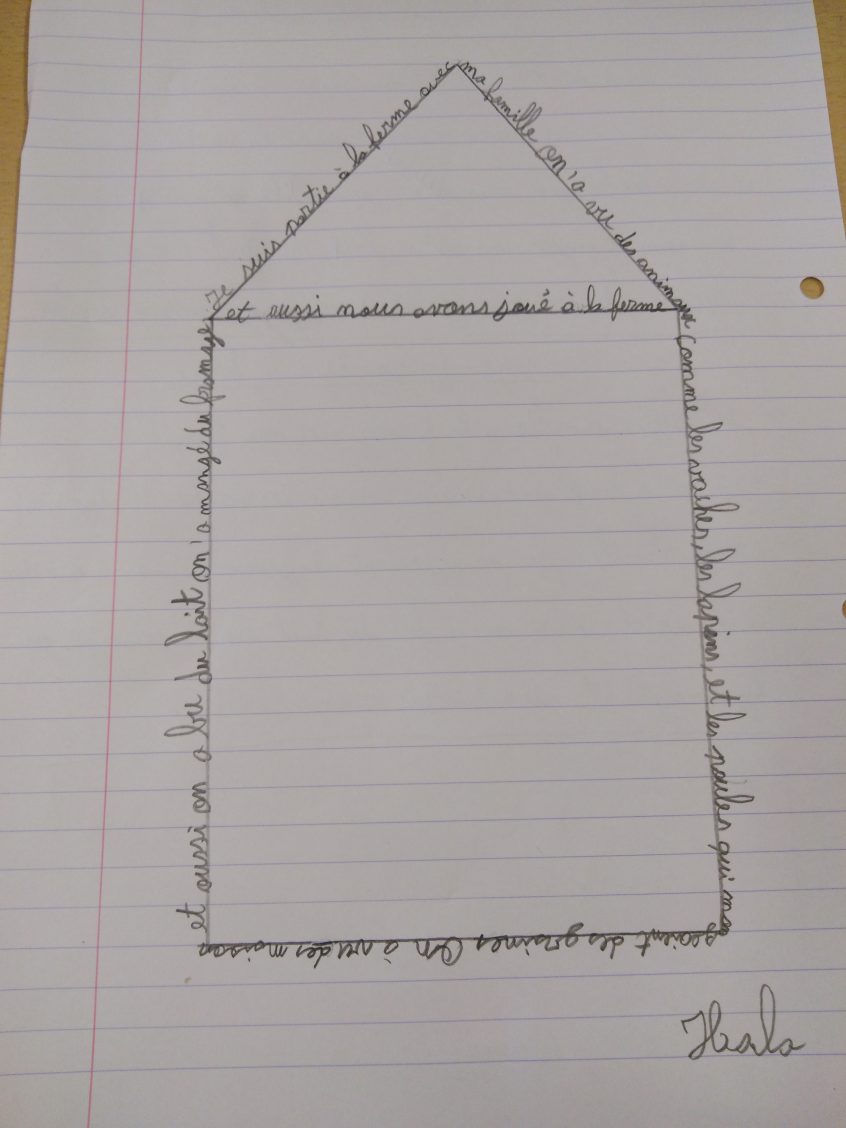 Je suis partie à la ferme avec
ma famille on'a vu des animaux
comme les vaches, les lapins, et les poules qui ma
geaient des graines On à vu des maison
et aussi on a bu du lait on'a mangé du fromage
et aussi nous avons joué à la ferme